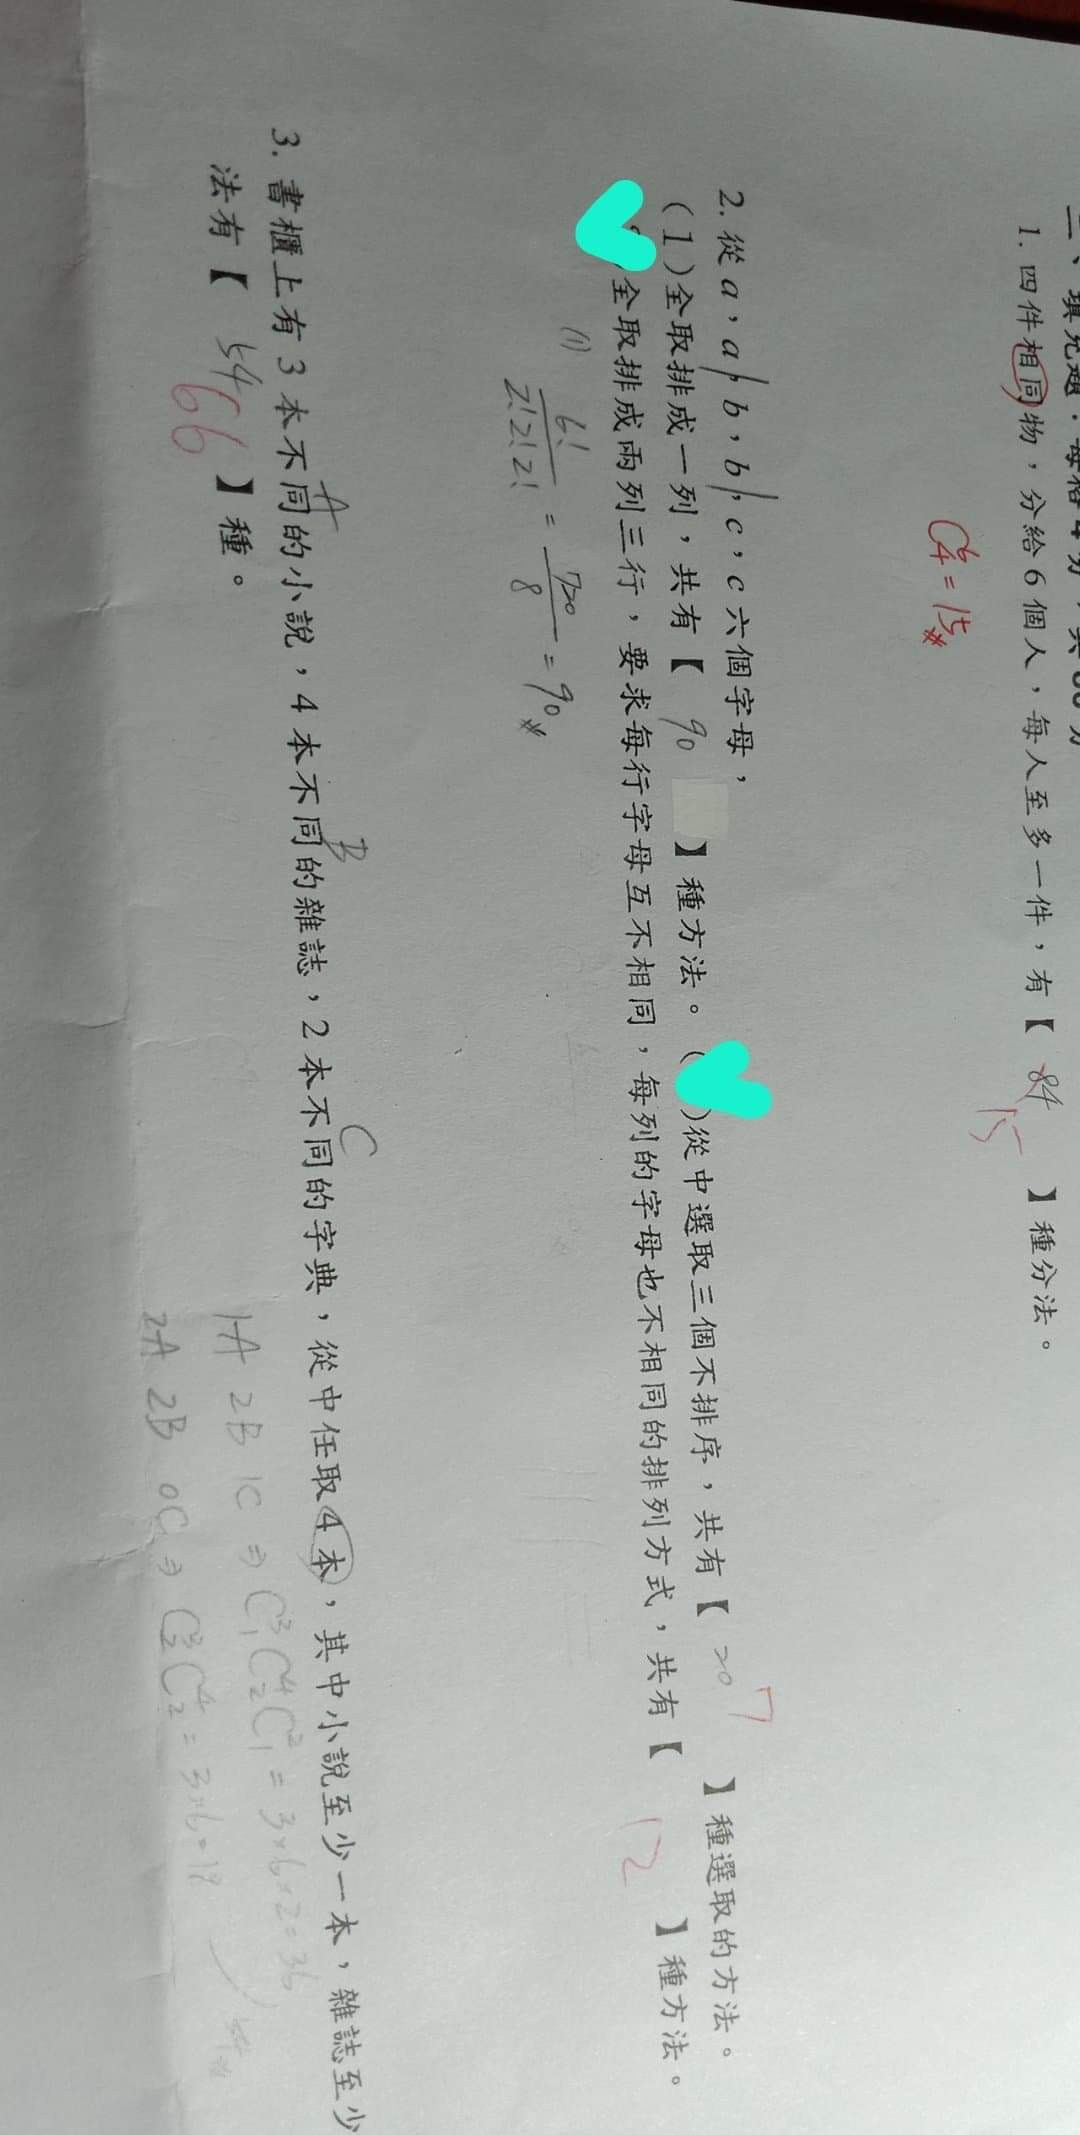 二、填充題：每格4分，共60分
1. 四件相同物，分給6個人，每人至多一件，有【 84 15 】種分法。
C⁶₄ = 15
2. 從 a，a，b，b，c，c 六個字母，
(1)全取排成一列，共有【 90 】種方法。( )從中選取三個不排序，共有【 20 7 】種選取的方法。
全取排成兩列三行，要求每行字母互不相同，每列的字母也不相同的排列方式，共有【 12 】種方法。
(1) 6!/2!2!2! = 720/8 = 90
3. 書櫃上有3本不同的小說，4本不同的雜誌，2本不同的字典，從中任取4本，其中小說至少一本，雜誌至少
A B C
法有【 54 66 】種。
1A 2B 1C ⇒ C³₁C⁴₂C²₁ = 3×6×2=36
2A 2B 0C ⇒ C³₂C⁴₂ = 3×6=18